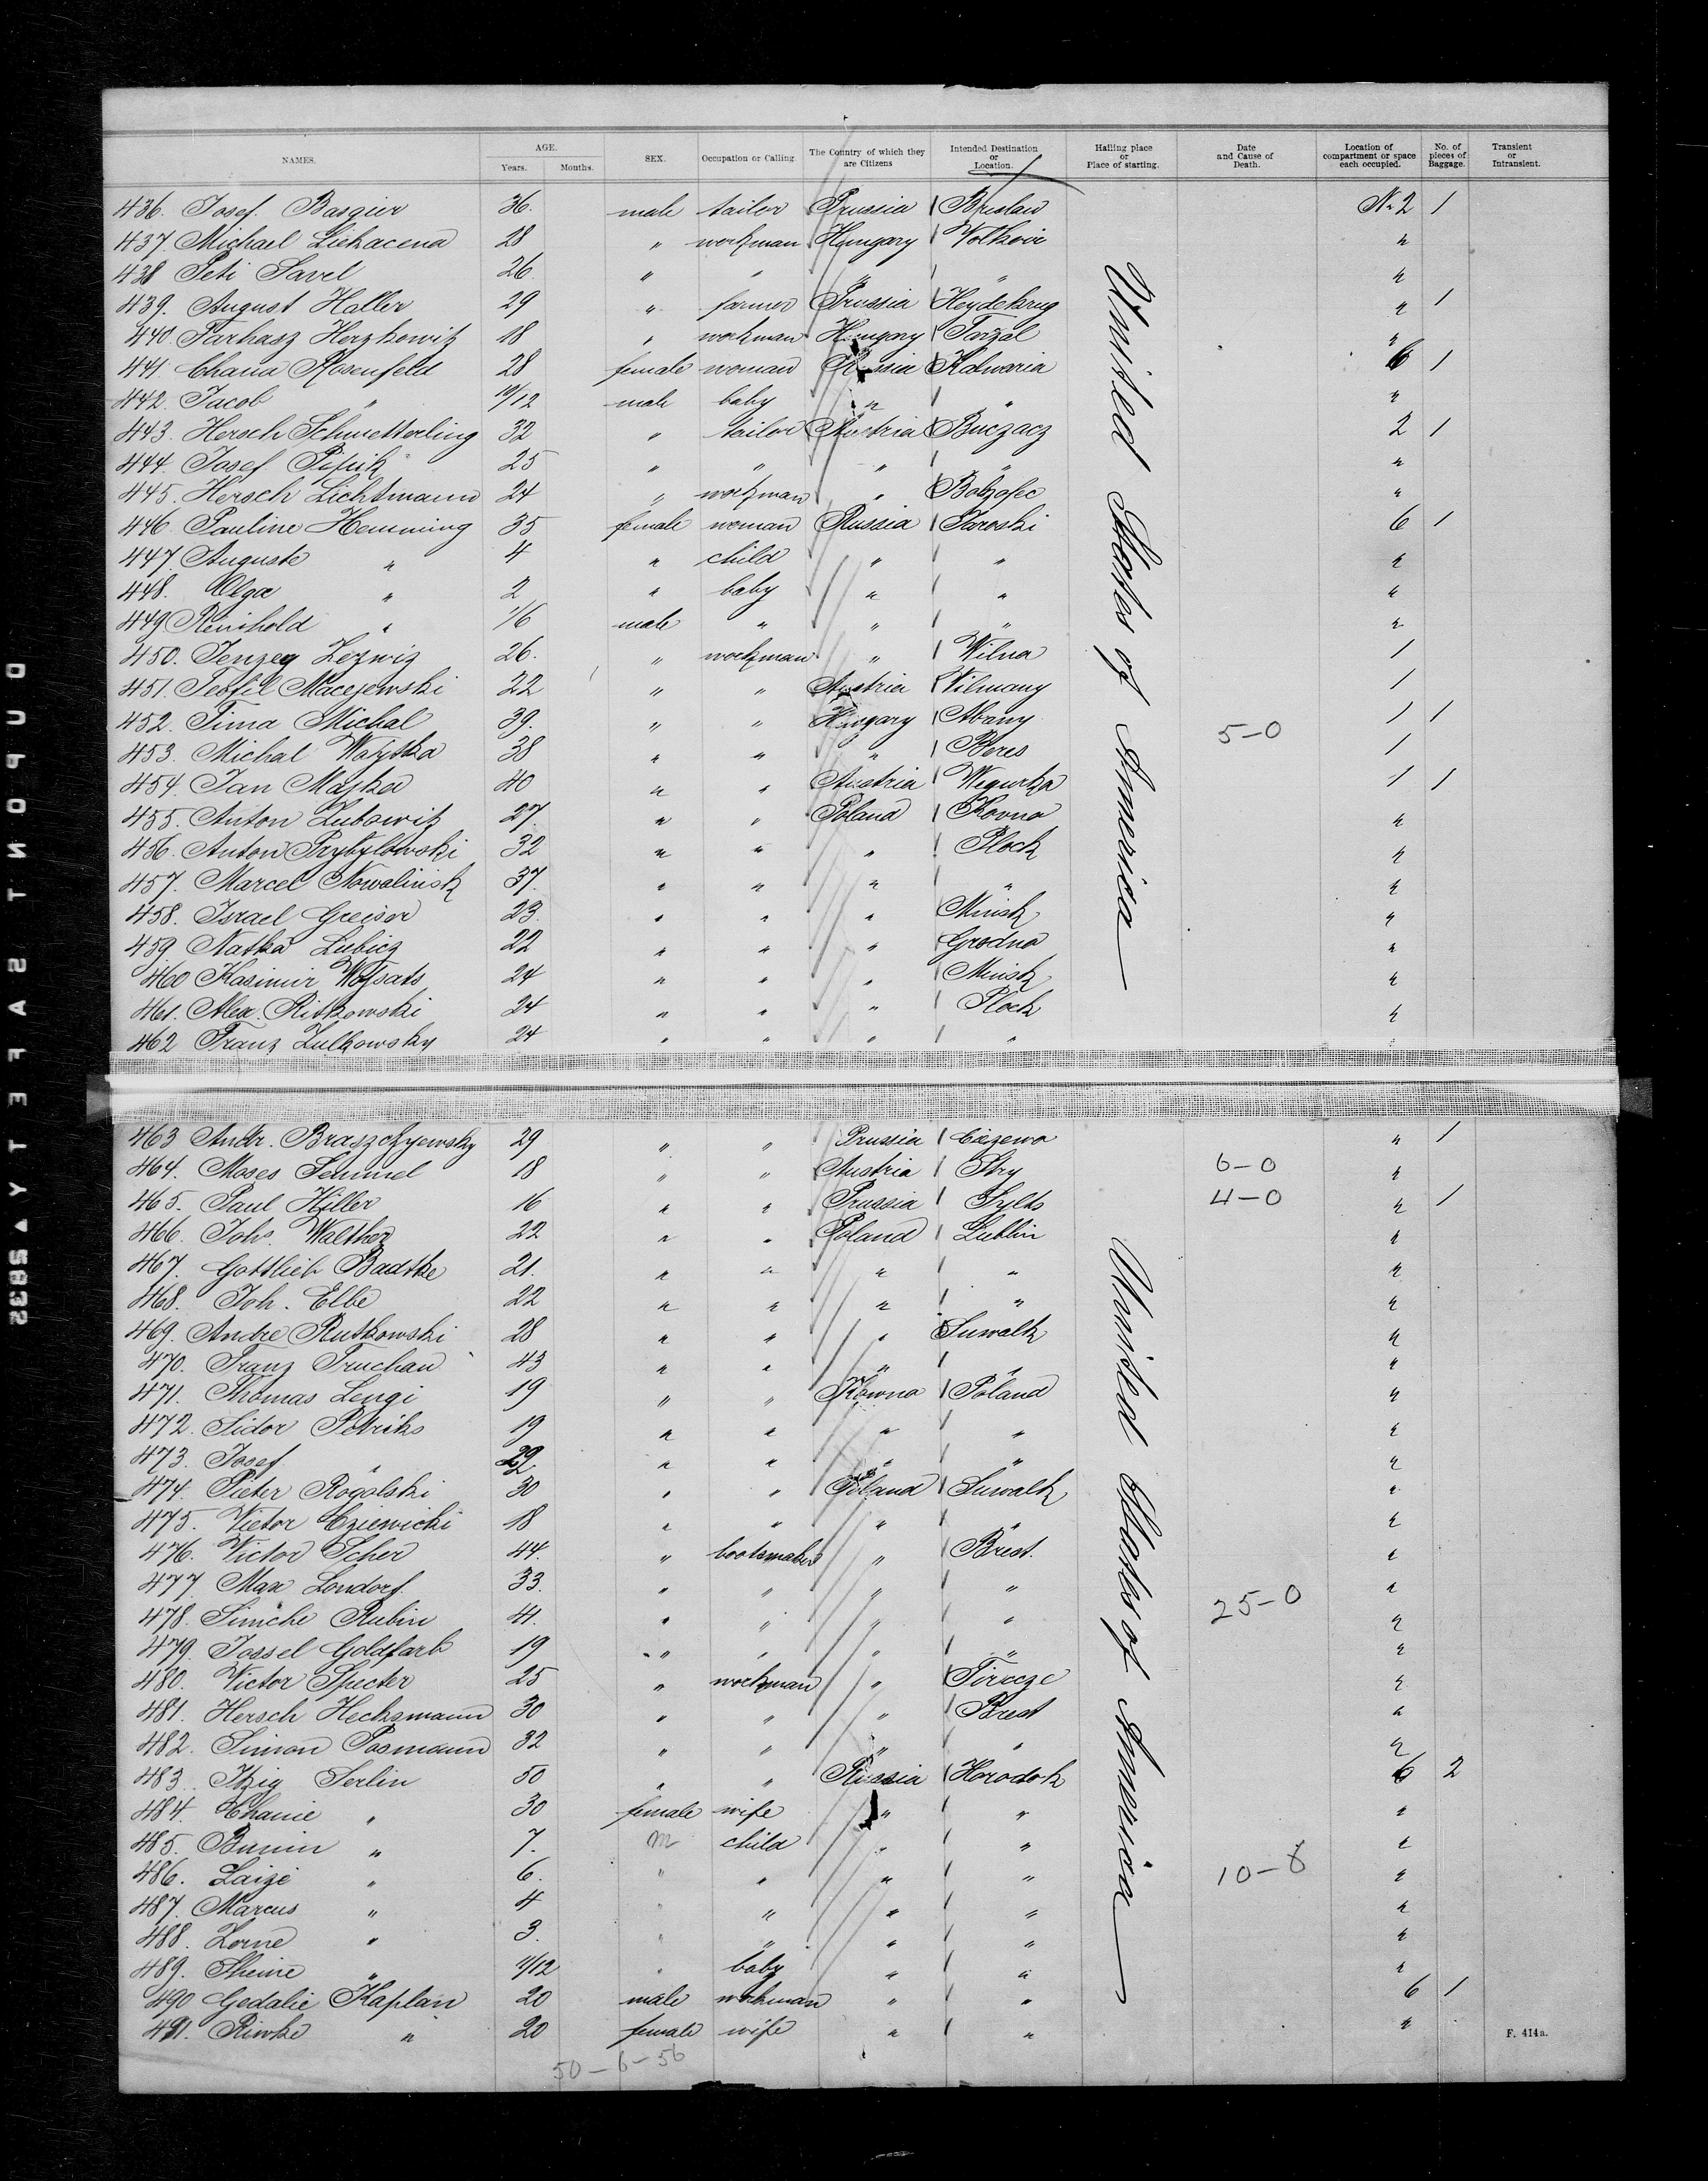 NAMES. AGE. Years. Months. SEX. Occupation or Calling. The Country of which they are Citizens Intended Destination or Location. Hailing place or Place of starting. Date and Cause of Death. Location of compartment or space each occupied. No. of pieces of Baggage. Transient or Intransient.
436. Josef Basgier 36. male tailor Prussia Breslau No 2 1
437. Michael 28 " workman Hungary "
438 Peti Savel 26. " " " " "
439. August Haller 29 " farmer Prussia Heydekrug " 1
440. Farhasz Herzkowitz 18 " workman Hungary Tarzal "
441. Chana Rosenfeld 28 female woman Russia Kalwaria 6 1
442. Jacob " 10/12 male baby " " "
443. Hersch Schmetterling 32 " tailor Austria Buczacz 2 1
444. Josef Pipik 25 " " " " "
445. Hersch Lichtmann 24 " workman " "
446. Pauline Hemming 35 female woman Russia Saroski 6 1
447. Auguste " 4 " child " " "
448. Olga " 2 " baby " " "
449 Reinhold " 1/6 male " " " "
450. 26. " workman " Wilna 1
451. Teofil Macejewski 22 " " Austria Vilmany 1
452. Tima Michal 39. " " Hungary Abany 5-0 1 1
453. Michal Wojtka 38 " " " Beres 1
454. Jan Majka 40 " " Austria 1 1
455. Anton Lubowitz 27. " " Poland Kovno "
456. Anton Przybylowski 32 " " " Plock "
457. Marcel Nowalinsk 37. " " " " "
458. Israel Greiser 23. " " " Minsk "
459. Natka Lubicz 22 " " " Grodno "
460 Kasimir Wojsats 24 " " " Minsk "
461. Alex. Ritkowski 24 " " " Plock "
462 Franz Zulkowsky 24 " " " " "
United States of America
463 Andr. Braszczyewsky 29 " " Prussia " 1
464. Moses Semmel 18 " " Austria Stry 6-0 "
465. Paul Hiller 16 " " Prussia Sylts 4-0 " 1
466. Johs. Walther 22 " " Poland Lublin "
467. Gottlieb Badtke 21. " " " " "
468. Joh. Elbe 22 " " " " "
469. Andre Rutkowski 28 " " " Suwalk "
470. Franz Truchan 43 " " " " "
471. Thomas Lengi 19 " " Kowno Poland "
472. Sidor Petriks 19 " " " " "
473. Josef " " " " " "
474. Pieter Rogalski 30 " " Poland Suwalk "
475. Victor Cziewicki 18 " " " " "
476. Victor Scher 44. " bootsmaker " Brest. "
477. Max Londorf 33. " " " " "
478. Simche Rubin 41. " " " " 25-0 "
479. Jossel Goldfarb 19 " " " " "
480. Victor Specter 25 " workman " "
481. Hersch Hecksmann 30 " " " Brest "
482. Simon Posmann 32 " " " " "
483. Itzig Serlin 50 " " Russia Horodok 6 2
484. Chanie " 30 female wife " " "
485. Bunin " 7. m child " " "
486. Laize " 6. " " " " 10-8 "
487. Marcus " 4 " " " " "
488. Zorne " 3. " " " " "
489. Sheine " 11/12 " baby " " "
490 Gedalie Kaplan 20 male workman " " 6 1
491. Riwke " 20 female wife " " "
United States of America
50-6-56
F. 414a.
DUPONT SAFETY 5832